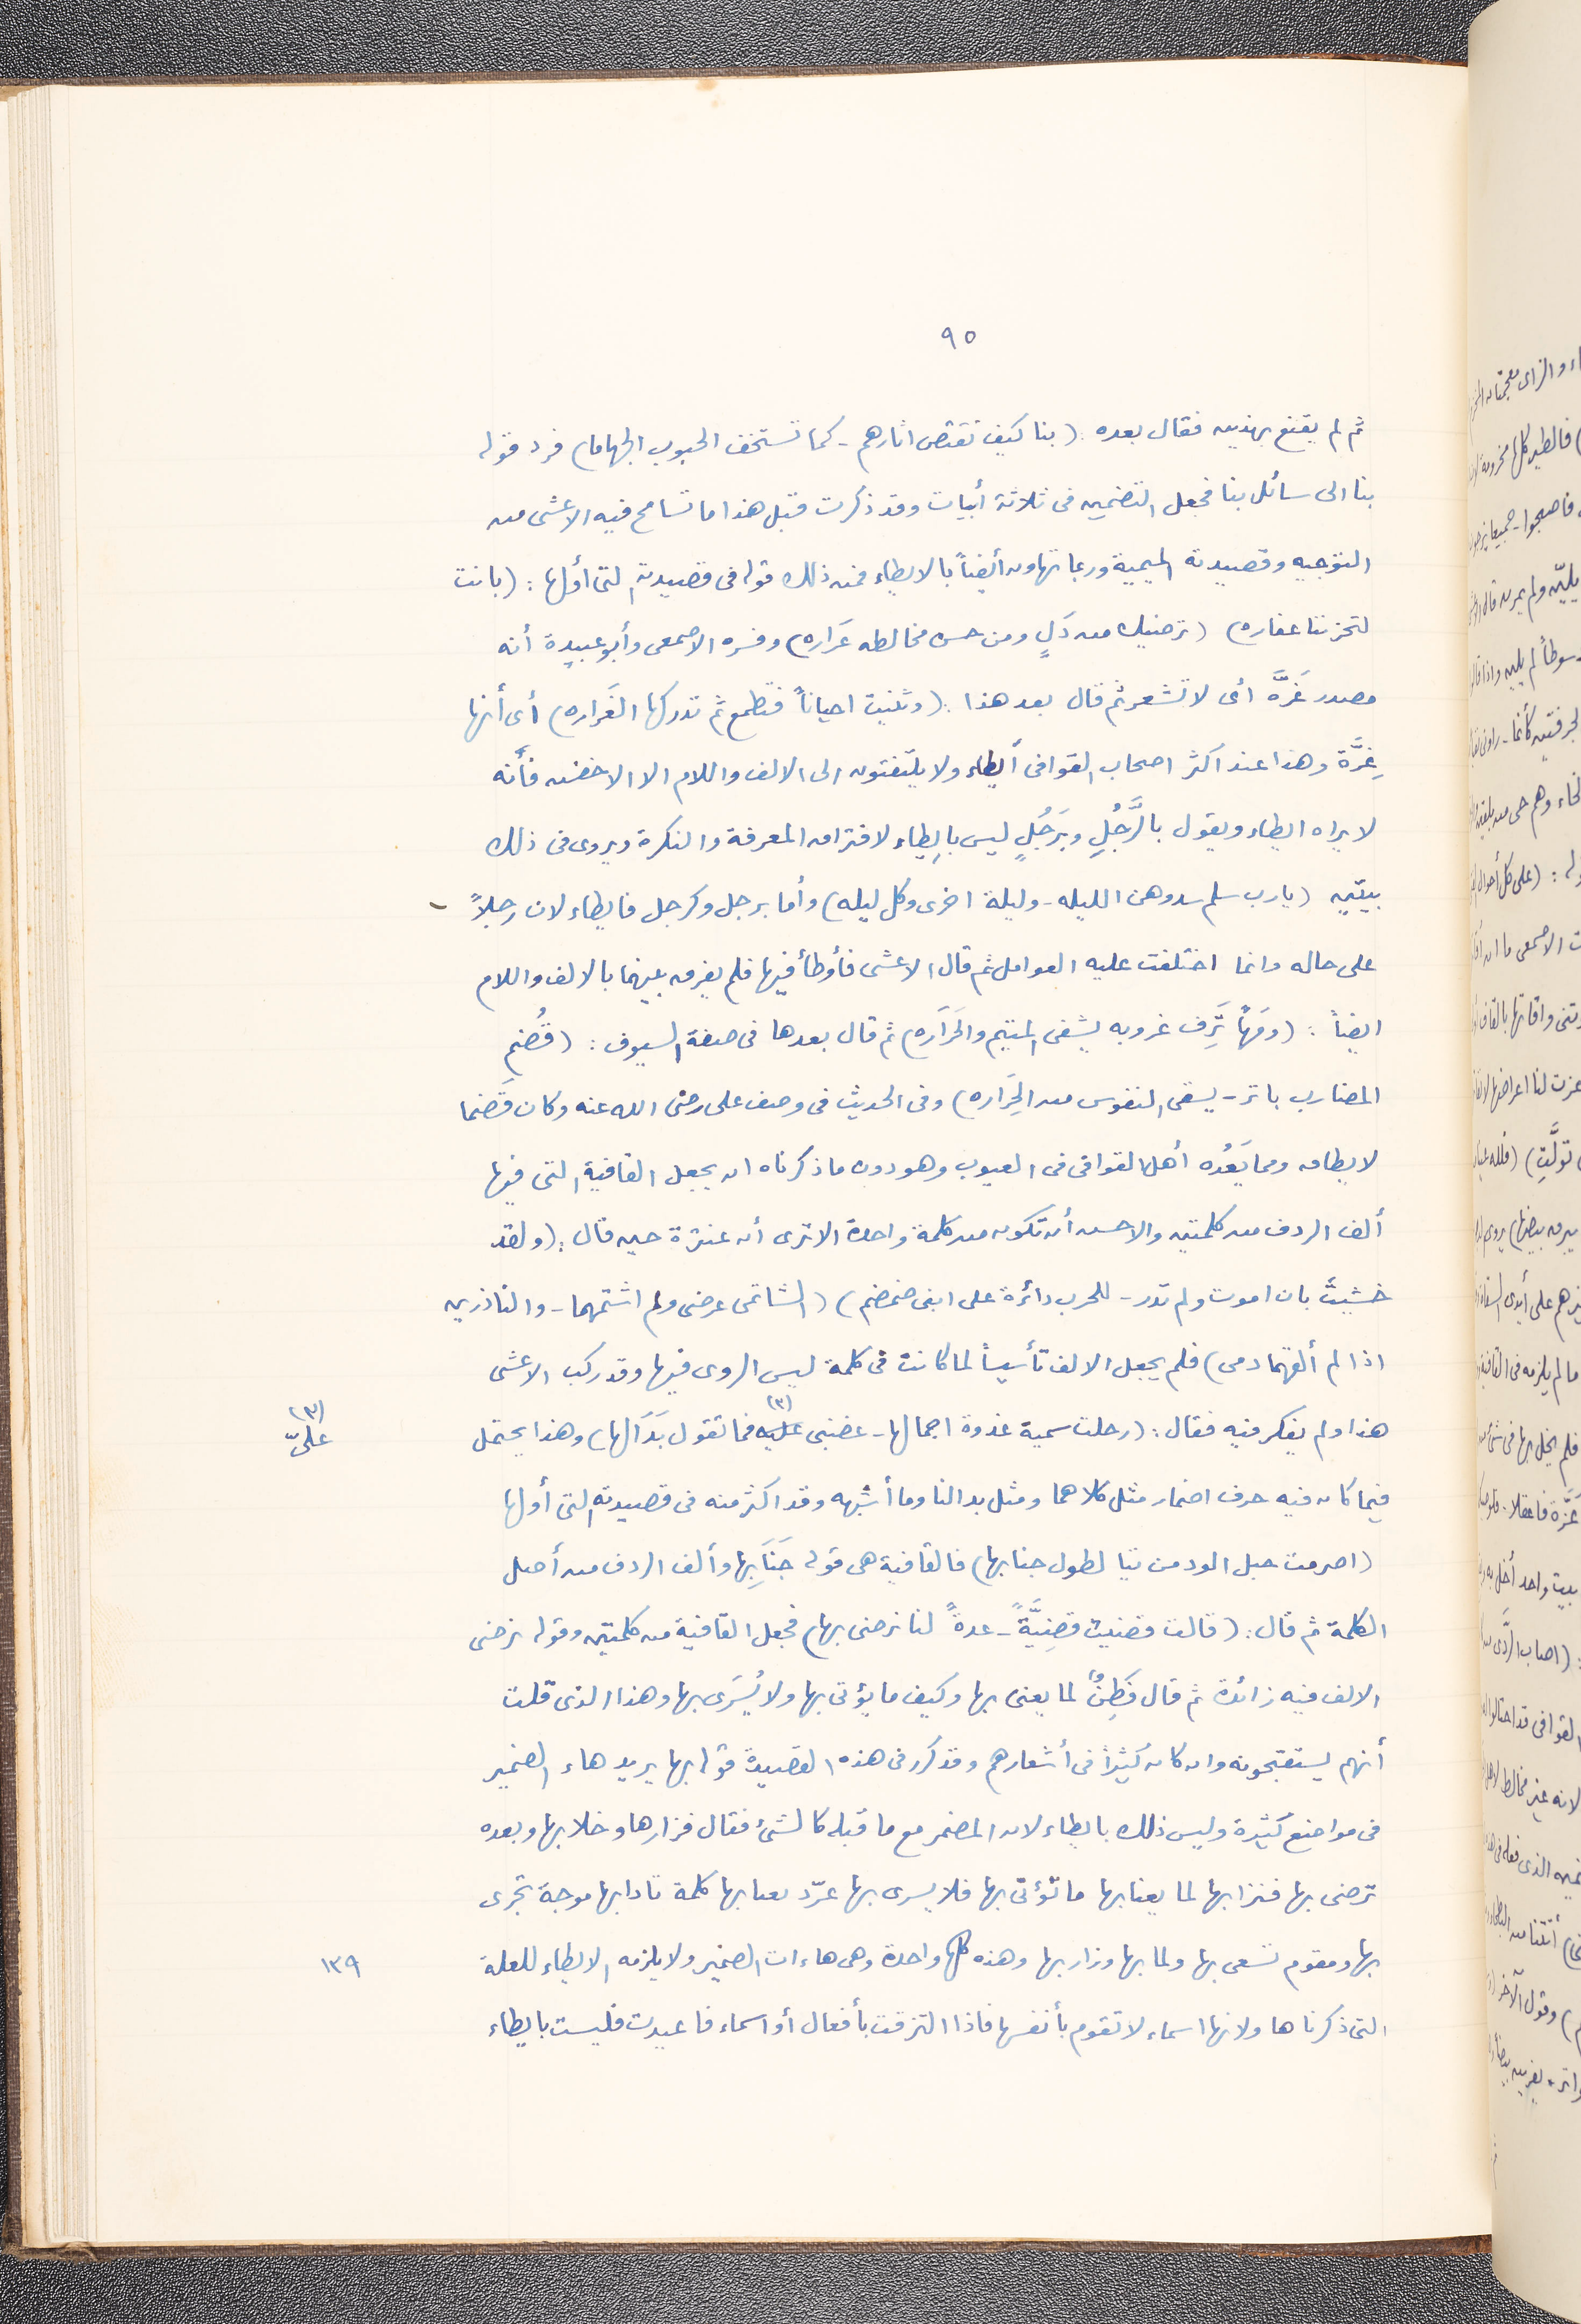 ٩٥
ثم لم يقنع بهذين فقال بعده: (بنا كيف نقتص اثارهم - كما تستخف الجنوب الجهاما) فرد قوله
بنا الى سائل بنا فجعل التضمين فى ثلاثة أبيات وقد ذكرت قبل هذا ما تسامح فيه الاعشى من
التوجيه وقصيدته الميمية وربما تهاون أيضاً بالايطاء فمن ذلك قوله فى قصيدته التى أولها: (بانت
لتحزننا عفاره) (ترضيك من دَلٍ ومن حسن مخالطه غَراره) وفسره الاصمعى وأبو عبيدة أنه
مصدر غَرَّه اى لا تشعر ثم قال بعد هذا: (وتثنيت احياناً فتطمع ثم تدركها الغَراره) أى أنها
غِرَّة وهذا عند اكثر اصحاب القوافى أيطاء ولا يلتفتون الى الالف واللام الا الاخفش فأنه
لا يراه ايطاء ويقول بالرَّجُلِ وبَرَجُلٍ ليس بايطاء لافتراق المعرفة والنكرة ويروى فى ذلك
بيتين (يارب سلم سدوهن الليله - وليلة اخرى وكل ليله) وأما برجل وكرجل فايطاء لان رجلاً
على حاله وانما اختلفت عليه العوامل ثم قال الاعشى فأوطأ فيها فلم يفرق بينهما بالالف واللام
ايضاً: (ومَهاً تَرِف غروبه يشفى المتيم والحَرَاره) ثم قال بعدها فى صفة السيوف: (قَضُمِ
المضارب باتر - يشفى النفوس من الحَراره) وفى الحديث فى وصف على رضى الله عنه وكان قَضُما
لا يطاق ومما يَعُده أهل القوافى فى العيوب وهو دون ما ذكرناه ان يجعل القافية التى فيها
ألف الردف من كلمتين والاحسن أن تكون من كلمة واحدة الا ترى أن عنترة حين قال: (ولقد
خشيتُ بان اموت ولم تدر - للحرب دائرة على ابنى ضمضم) (الشاتمى عرضى ولم اشتمهما - والناذرين
اذا لم ألقهما دمى) فلم يجعل الالف تأسيساً لما كانت فى كلمة ليس الروى فيها وقد ركب الاعشى
هذا ولم يفكر فيه فقال: (رحلت سمية غدوة اجمالها - غضبى عليه (٣) فما تقول بَدَا لها) وهذا يحتمل
(٣) علىّ
فيما كان فيه حرف اضمار مثل كلاهما ومثل بدالنا وما أشبهه وقد اكثر منه فى قصيدته التى أولها
(اصرمت حبل الود من تيا لطول جنابها) فالقافية هى قوله جَنَابِها وألف الردف من أصل
الكلمة ثم قال: (قالت قضيت قضِيَّةً - عدةً لنا نرضى بها) فجعل القافية من كلمتين وقوله نرضى
الالف فيه زائدة ثم قال فَطِنٌ لما يعنى بها وكيف ما يؤتى بها ولا يُسَرى بها وهذا الذى قلت
أنهم يستقبحونه وان كان كثيراً فى أشعارهم وقد كرر فى هذه القصيدة قوله بها يريد هاء الضمير
فى مواضع كثيرة وليس ذلك بايطاء لان المضمر مع ما قبله كالشئ فقال فزارها وخلا بها وبعده
ترضى بها فنزا بها لما يعنا بها ما تؤتى بها فلا يسرى بها عرّد بعنا بها كلمة نادا بها موجة تجرى
بها ومقوم تسعى بها ولما بها وزار بها وهذه كلها واحدة وهى هاءات الضمير ولا يلزمه الايطاء للعلة
١٣٩
التى ذكرناها ولانها اسماء لا تقوم بأنفسها فاذا التزقت بأفعال أو اسماء فاعيدت فليست بايطاء